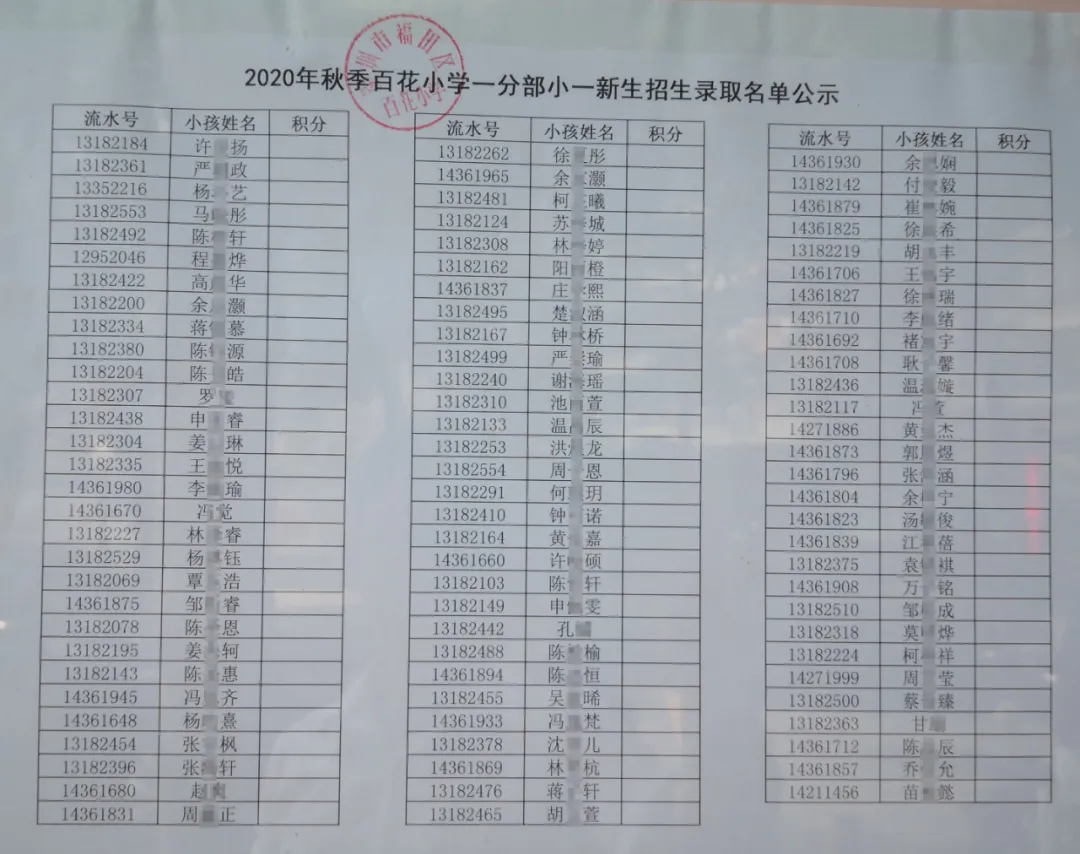 圳市福田区
百花小学
2020年秋季百花小学一分部小一新生招生录取名单公示
流水号 小孩姓名 积分
13182184 许 扬
13182361 严 政
13352216 杨 艺
13182553 马 彤
13182492 陈 轩
12952046 程 烨
13182422 高 华
13182200 余 灏
13182334 蒋 慕
13182380 陈 源
13182204 陈 皓
13182307 罗
13182438 申 睿
13182304 姜 琳
13182335 王 悦
14361980 李 瑜
14361670 冯 觉
13182227 林 睿
13182529 杨 钰
13182069 覃 浩
14361875 邹 睿
13182078 陈 恩
13182195 姜 轲
13182143 陈 惠
14361945 冯 齐
14361648 杨 熹
13182454 张 枫
13182396 张 轩
14361680 赵
14361831 周 正
流水号 小孩姓名 积分
13182262 徐 彤
14361965 余 灏
13182481 柯 曦
13182124 苏 城
13182308 林 婷
13182162 阳 橙
14361837 庄 熙
13182495 楚 涵
13182167 钟 桥
13182499 严 瑜
13182240 谢 瑶
13182310 池 萱
13182133 温 辰
13182253 洪 龙
13182554 周 恩
13182291 何 玥
13182410 钟 诺
13182164 黄 嘉
14361660 许 硕
13182103 陈 轩
13182149 申 雯
13182442 孔
13182488 陈 榆
14361894 陈 恒
13182455 吴 晞
14361933 冯 梵
13182378 沈 儿
14361869 林 杭
13182476 蒋 轩
13182465 胡 萱
流水号 小孩姓名 积分
14361930 余 娴
13182142 付 毅
14361879 崔 婉
14361825 徐 希
13182219 胡 丰
14361706 王 宇
14361827 徐 瑞
14361710 李 绪
14361692 褚 宇
14361708 耿 馨
13182436 温 嫙
13182117 冯 萱
14271886 黄 杰
14361873 郭 煜
14361796 张 涵
14361804 余 宁
14361823 汤 俊
14361839 江 蓓
13182375 袁 祺
14361908 万 铭
13182510 邹 成
13182318 莫 烨
13182224 柯 祥
14271999 周 莹
13182500 蔡 臻
13182363 甘
14361712 陈 辰
14361857 乔 允
14211456 苗 懿